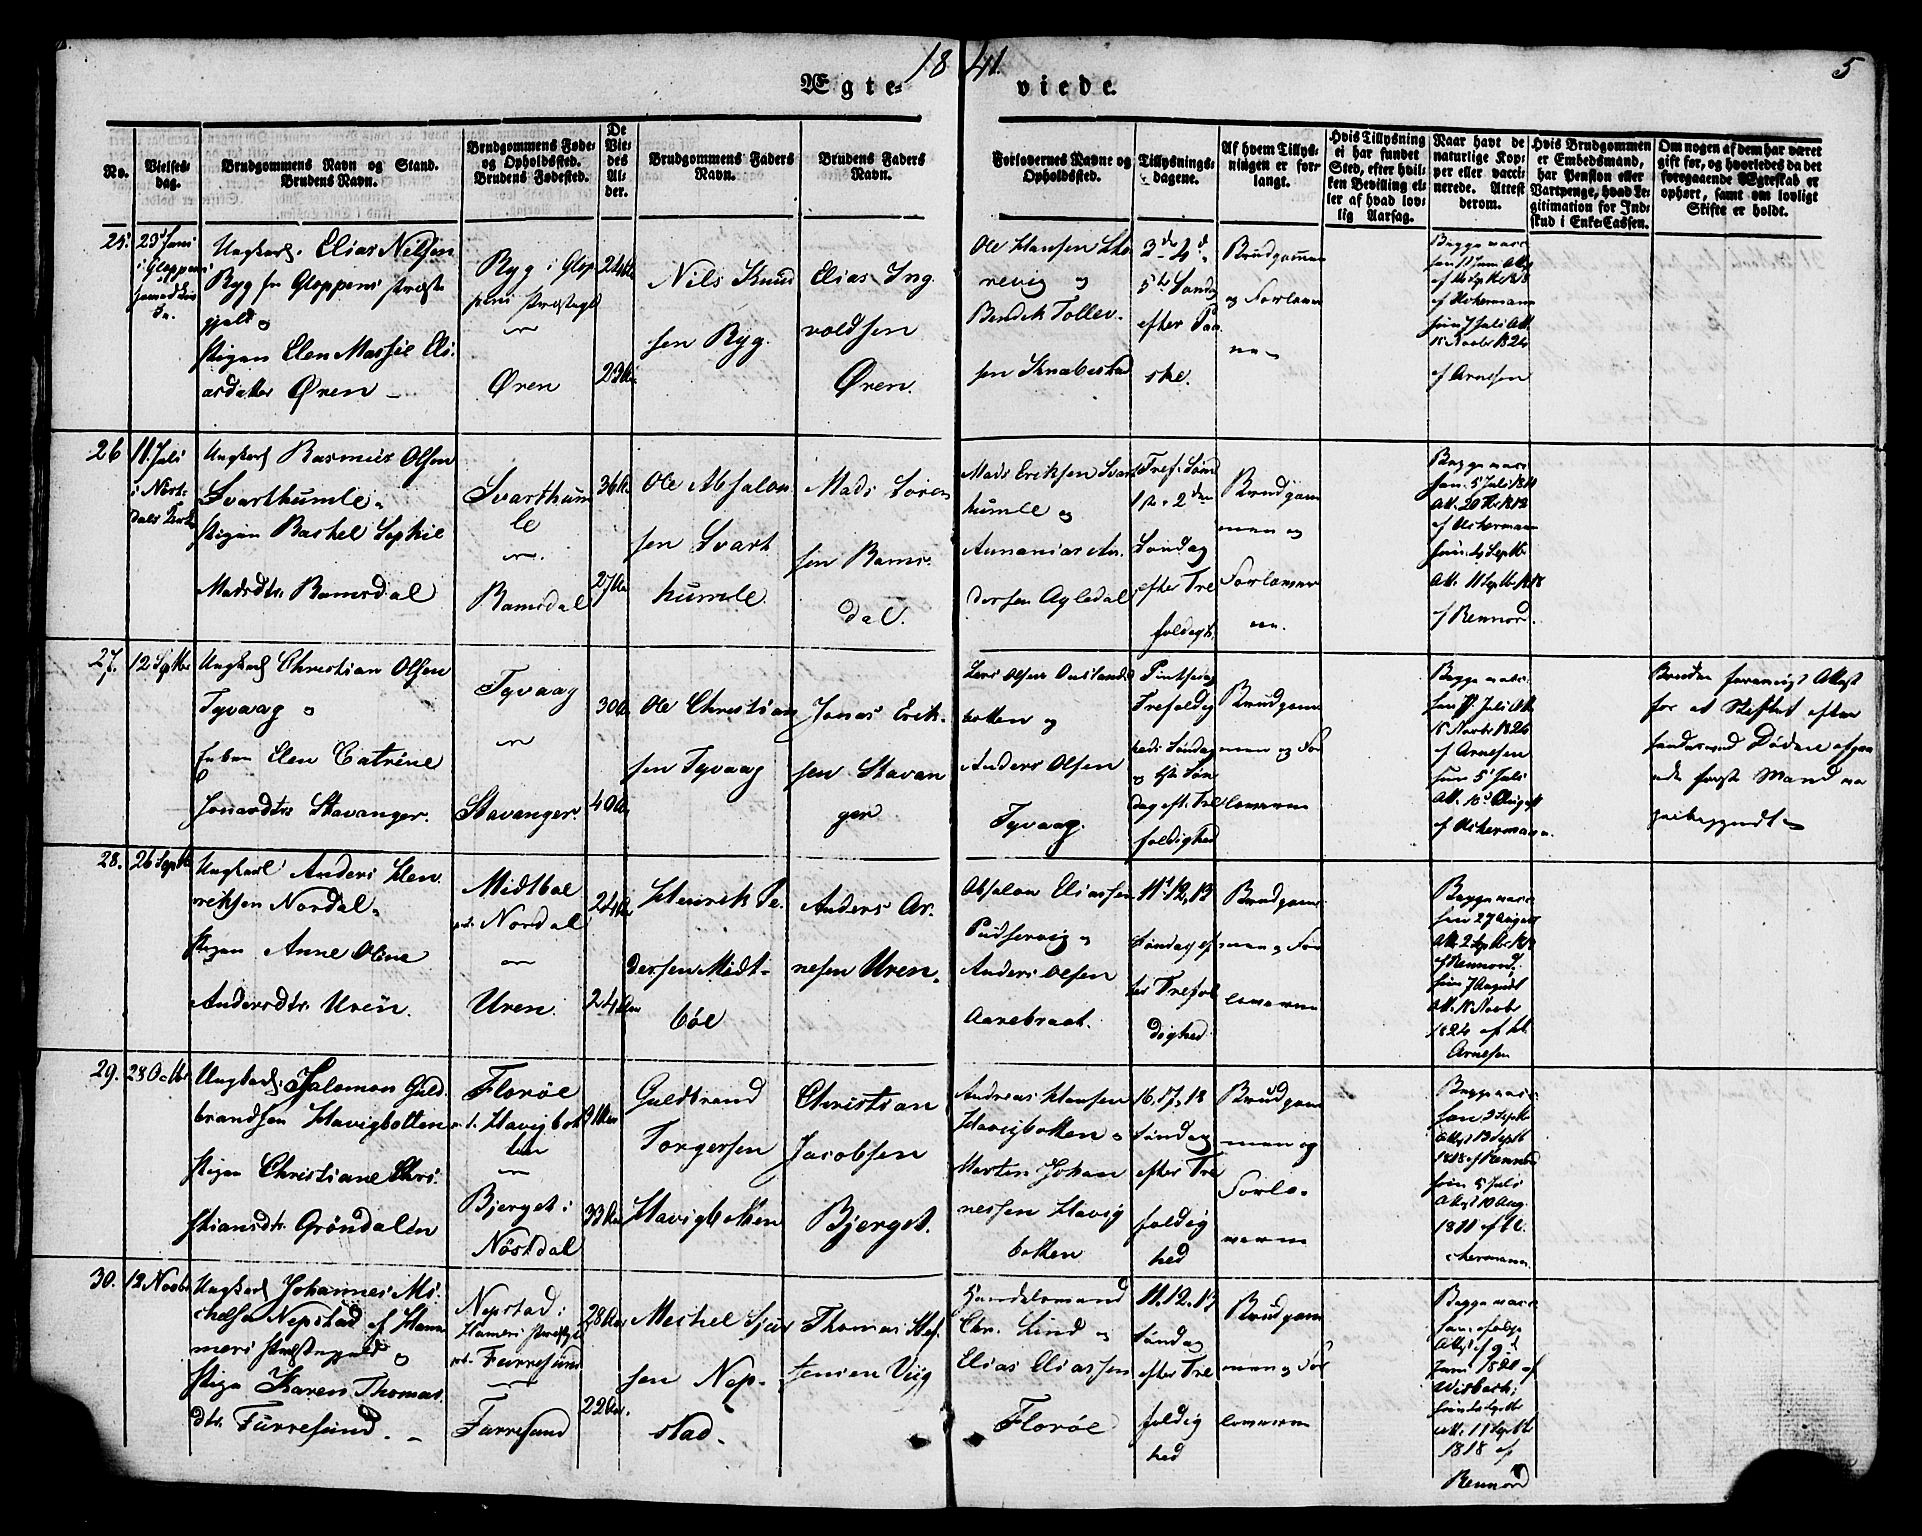 1841.
5
Ægteviede.
No.
Vielses-
dag.
Brudgommens Navn og Stand.
Brudens Navn.
Brudgommens Føde-
og Opholdssted.
Brudens Fødested.
De
Vie-
des
Al-
der.
Brudgommens Faders
Navn.
Brudens Faders
Navn.
Forlovernes Navne og
Opholdssted.
Tillysnings-
dagene.
Af hvem Tillys-
ningen er for-
langt.
Hvis Tillysning
ei har fundet
Sted, efter hvil-
ken Bevilling el-
ler af hvad lov-
lig Aarsag.
Naar havt de
naturlige Kop-
per eller vacci-
nerede. Attest
derom.
Hvis Brudgommen
er Embedsmand,
har Pension eller
Vartpenge, hvad Le-
gitimation for Ind-
skud i Enke-Cassen.
Om nogen af dem har været
gift før, og hvorledes da det
foregaaende Ægteskab er
ophørt, samt om lovligt
Skifte er holdt.
25.
Ungkarl. Elias Nilsen
Ryg fra Gloppens Præste
gjeld og
Pigen Elen Massie Eli-
asdatter Øren
Ryg i Glop
pens Præstegl
Øren
24 Aar
23 Aar
Nils Knud
sen Ryg.
Elias Ing
voldsen
Øren.
Ole Hansen
og
Bendik Tollev-
sen
3die 4de
5te Søndag
efter Paa
ske.
Brudgommen
og Forlover
ne
Begge vacc.
af Arnesen
26
11 Juli
i Nord-
dals Kirke
Ungkarl Rasmus Olsen
Svarthumle
Pigen Rachel Sophie
Madsdtr. Ramsdal
Svarthum
le
Ramsdal
36 Aar
27 Aar
Ole Absalon
sen Svart
humle
Mads Soren
sen Rams-
dal.
Mads Eriksen Svart
humle og
Annanias An-
dersen Agledal
Tref. Sønd
1ste 2den
Søndag
efter Tre
foldigh.
Brudgom
men og
Forlover
ne.
Begge vacc.
Han 5 Juli
af Rennord.
27.
12 Septbr
Ungkarl Christian Olsen
Tyvaag og
Enken Elen Catrine
Jonasdtr Stavanger.
Tyvaag
Stavanger
30 Aar
40 Aar
Ole Christian
sen Tyvaag
Jonas Erik-
sen Stavan
ger
Lars Olsen
botten og
Anders Olsen
Tyvaag.
Pintsedag
Trefoldig
heds Søndag
og 1ste Søn
dag eft. Tre
foldighed
Brudgom
men og For
loverne
Begge vacc.
Han 7 Juli Att.
15 Novbr 1824
af Arnesen
Hun 5 Juli
af Ackermann.
Bruden foreviist Attest
for at Skiftet efter
hendes ved Døden afgaa
ede første Mand er
paabegyndt
28.
26 Septbr
Ungkarl Anders Hen
riksen Nordal
Pigen Anne Oline
Andersdtr. Uren.
Midtbøe
Nordal
Uren.
24 Aar
24 Aar
Henrik Pe-
dersen Midt-
bøe
Anders Ar-
nesen Uren.
Absalon Eliassen
og
Anders Olsen
Aarebraat.
11, 12, 13
Søndag ef-
ter Trefol
dighed
Brudgom
men og For
loverne
Begge vacc.
Han 27 August
af Rennord,
Hun 7 August
Att. 15 Novbr
1824 af
Arnesen
29.
28 Octbr
Ungkarl. Salomon Guld
brandsen Havigbotten
Pigen Christiane Chri-
stiansdtr. Gröndalen
Florøe
Havigbot
ten
Bjerget i
Nöstdal
33 Aar
Guldbrand
Torgersen
Havigbotten
Christian
Jacobsen
Bjerget.
Andreas Hansen
Havigbotten og
Morten Johan
nessen Havig
botten
16. 17. 18
Søndag
efter Tre
foldig
hed
Brudgom
men og
Forlo-
verne
Begge vacc.
Han 2 Septb
Attest 13 Septb
1818 af Rennord
Hun 5 Juli
Attest 10 Aug.
1811 af
30.
12 Novbr
Ungkarl Johannes Mi-
chelsen Nepstad af Ham
mers Præstegjeld og
Pige Karen Thomas
dtr. Furresund.
Nepstad i
Hamers Præstegl
Furresund
Furresund
28 Aar
22 Aar.
Mechel Sjur
sen Nep-
stad.
Thomas
Handelsmand
Chr. Lind og
Elias Eliassen
Florøe
11. 12. 13
Søndag
efter Tre
foldig
hed
Brudgom
men og For
loverne
Begge vacc.
Han ifølge
Attest af 9de
Juni 1820 af
Att. 11 Septbr
1818 af
Rennord